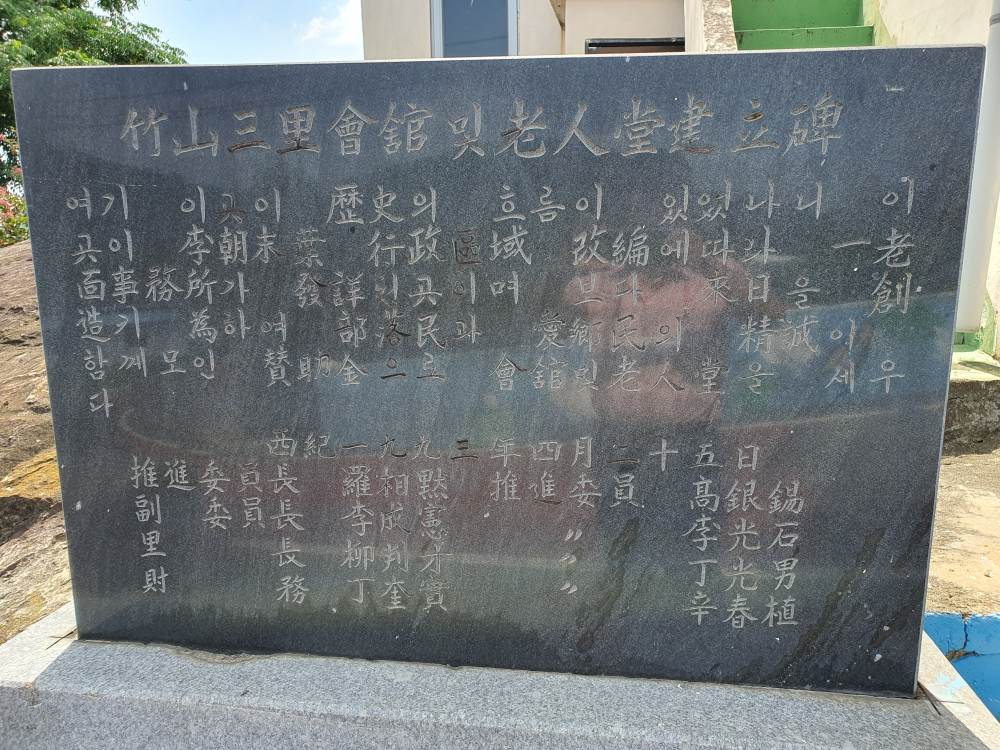 竹山三里會館 및 老人堂建立碑
여기 이곳이 歷史의 흐름이 있었나니 이
곳이 李朝末葉 行政區域 改編에 따라 一老
面事務所가 發詳된 곳이며 보다 나 來日을 創
造기 爲하여 部落民과 愛鄕民의 精誠이
함께 모인 贊助金으로 會館및 老人堂을 세우
다
西紀 一九九三年 四月 二十五日
推進委員長 羅相默 推進委員 高銀錫
副委員長 李成憲 〃 李光石
里長 柳判才 〃 丁光男
財務 丁奎實 〃 辛春植